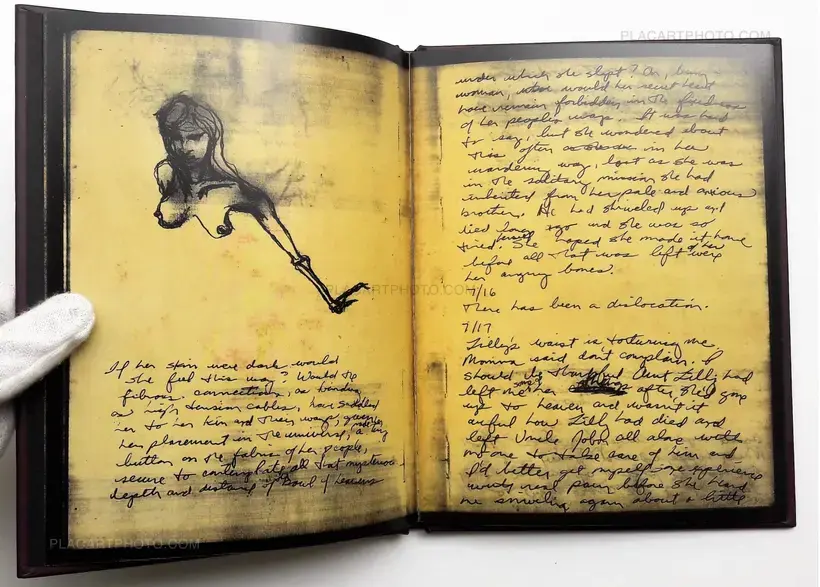 PLACARTPHOTO.COM
If her skin were dark would
she feel this way? Would the
fibrous connections, as binding
as high tension cables, have saddled
her to her kin and their ways, given
her placement in the universe, a tiny
button on the fabric of her people,
secure to contemplate all that mysterious
depth and distance of the bowl of heavens
under which she slept? Or, being
woman, would her secret heart
have remain forbidden in the fixedness
of her peoples ways. It was hard
to say, but she wondered about
this often in her
wandering way, lost as she was
in the solitary mission she had
inherited from her pale and anxious
brother. He had shriveled up and
died long ago and she was so
tired herself. She hoped she made it home
before all that was left of her were
her angry bones.
7/16
There has been a dislocation.
7/17
Lilly's waist is torturing me.
Momma said don't complain. I
should be thankful Aunt Lilly had
left me her after she'd gone
up to heaven and wasn't it
awful how Lilly had died and
left Uncle John all alone with
no one to take care of him and
I'd better get myself some experience
with real pain before she heard
me sniveling again about a little
PLACARTPHOTO.COM
PLACARTPHOTO.COM